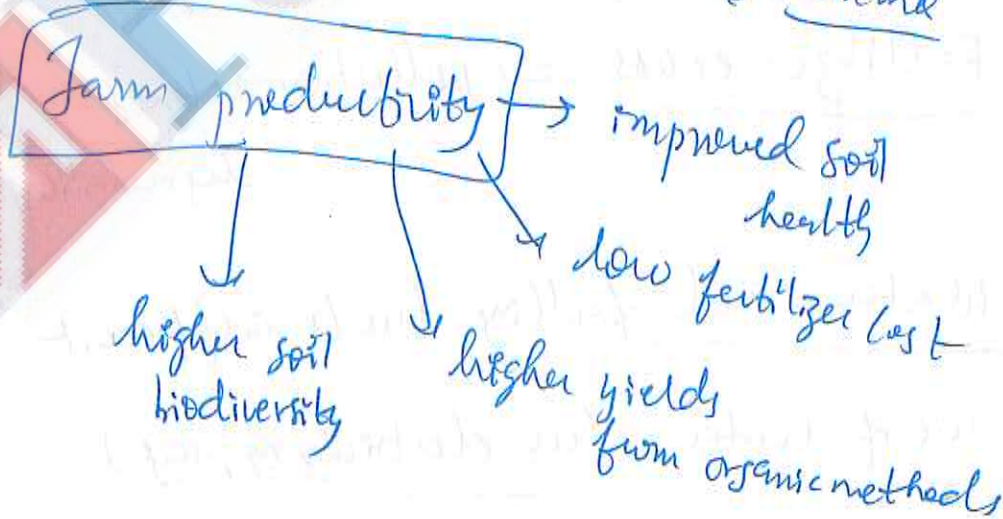 Farm productivity → improved soil
health
low fertilizer cost
higher soil
biodiversity
higher yields
from organic methods